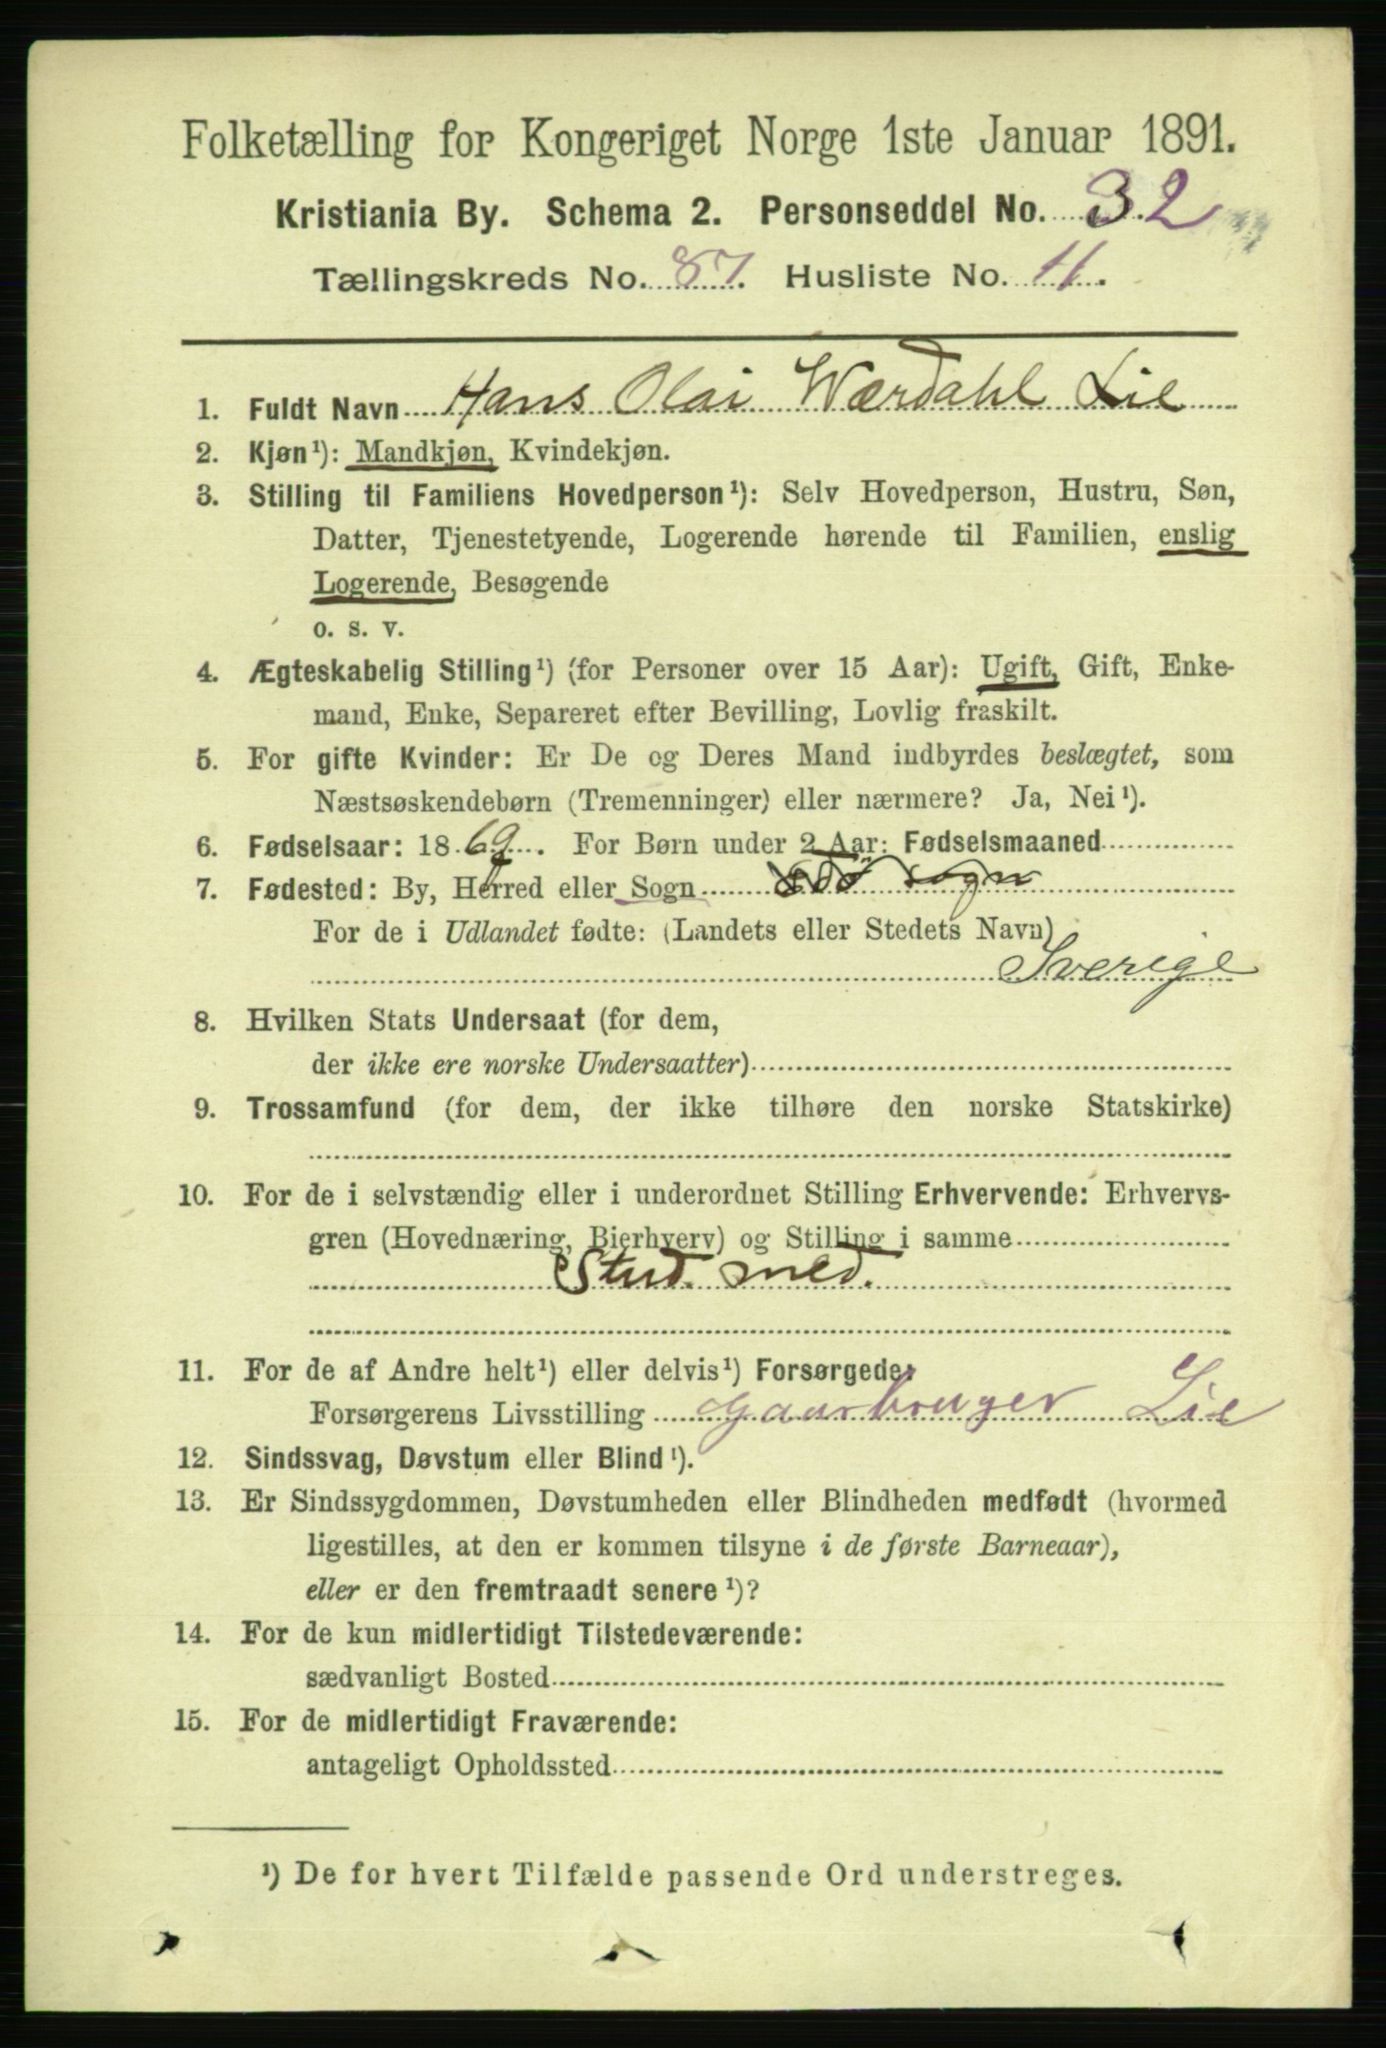 Folketælling for Kongeriget Norge 1ste Januar 1891.
Kristiania By. Schema 2. Personseddel No. 32
Tællingskreds No. 87. Husliste No. 11.
1. Fuldt Navn Hans Olai Wærdahl Lie
2. Kjøn¹): Mandkjøn, Kvindekjøn.
3. Stilling til Familiens Hovedperson¹): Selv Hovedperson, Hustru, Søn,
Datter, Tjenestetyende, Logerende hørende til Familien, enslig
Logerende, Besøgende
o. s. v.
4. Ægteskabelig Stilling¹) (for Personer over 15 Aar): Ugift, Gift, Enke-
mand, Enke, Separeret efter Bevilling, Lovlig fraskilt.
5. For gifte Kvinder: Er De og Deres Mand indbyrdes beslægtet, som
Næstsøskendebørn (Tremenninger) eller nærmere? Ja, Nei¹).
6. Fødselsaar: 1869. For Børn under 2 Aar: Fødselsmaaned
7. Fødested: By, Herred eller Sogn sogn
For de i Udlandet fødte: (Landets eller Stedets Navn)
Sverige
8. Hvilken Stats Undersaat (for dem,
der ikke ere norske Undersaatter)
9. Trossamfund (for dem, der ikke tilhøre den norske Statskirke)
10. For de i selvstændig eller i underordnet Stilling Erhvervende: Erhvervs-
gren (Hovednæring, Bierhverv) og Stilling i samme
Stud. med.
11. For de af Andre helt¹) eller delvis¹) Forsørgede,
Forsørgerens Livsstilling gaarbruger Lie
12. Sindssvag, Døvstum eller Blind¹).
13. Er Sindssygdommen, Døvstumheden eller Blindheden medfødt (hvormed
ligestilles, at den er kommen tilsyne i de første Barneaar),
eller er den fremtraadt senere¹)?
14. For de kun midlertidigt Tilstedeværende:
sædvanligt Bosted
15. For de midlertidigt Fraværende:
antageligt Opholdssted
¹) De for hvert Tilfælde passende Ord understreges.